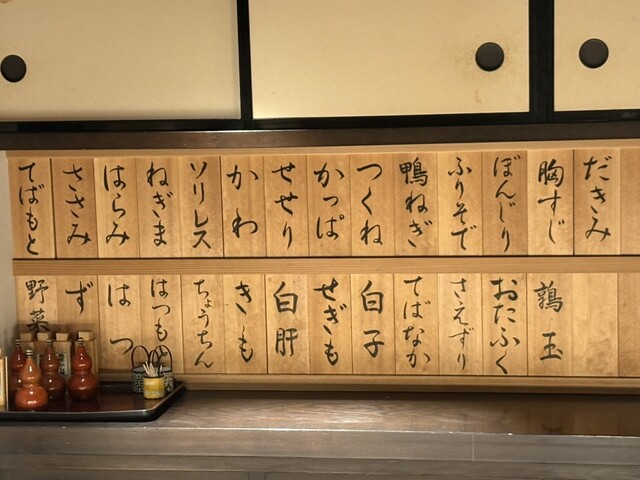 だきみ
胸すじ
ぼんじり
ふりそで
鴨ねぎ
つくね
かっぱ
せせり
かわ
ソリレス
ねぎま
はらみ
ささみ
てばもと
鶉玉
おたふく
さえずり
てばなか
白子
せぎも
白肝
きも
ちょうちん
はつもと
はつ
ず
野菜